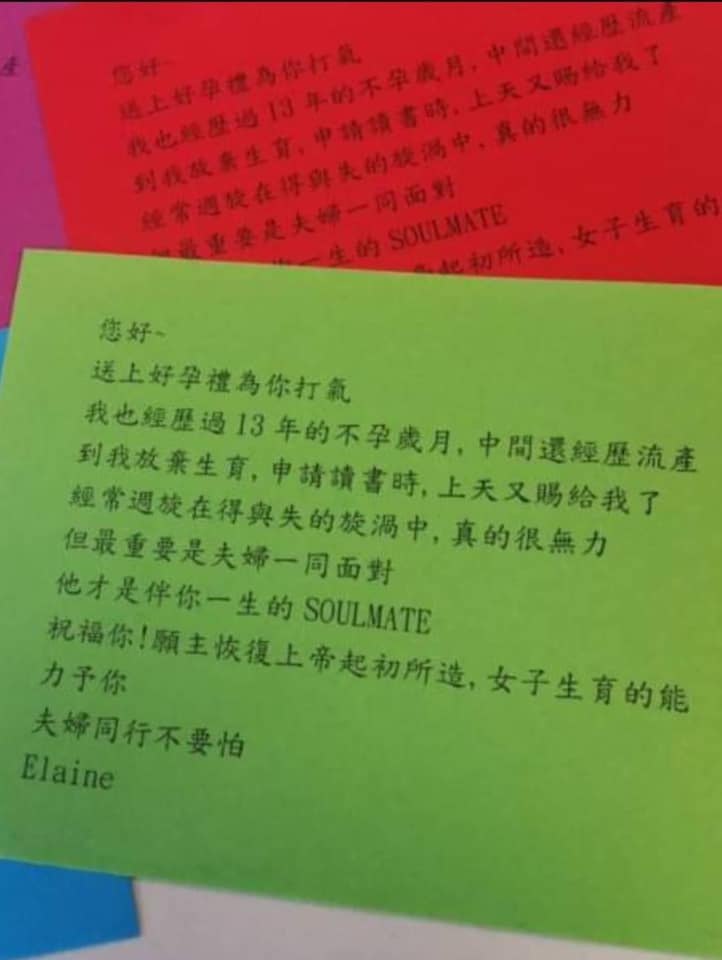 產
您好~
送上好孕禮為你打氣
我也經歷過 13 年的不孕歲月, 中間還經歷流產
到我放棄生育, 申請讀書時, 上天又賜給我了
經常週旋在得與失的旋渦中, 真的很無力
但最重要是夫婦一同面對
一生的 SOULMATE
起初所造, 女子生育的
您好~
送上好孕禮為你打氣
我也經歷過 13 年的不孕歲月, 中間還經歷流產
到我放棄生育, 申請讀書時, 上天又賜給我了
經常週旋在得與失的旋渦中, 真的很無力
但最重要是夫婦一同面對
他才是伴你一生的 SOULMATE
祝福你! 願主恢復上帝起初所造, 女子生育的能
力予你
夫婦同行不要怕
Elaine